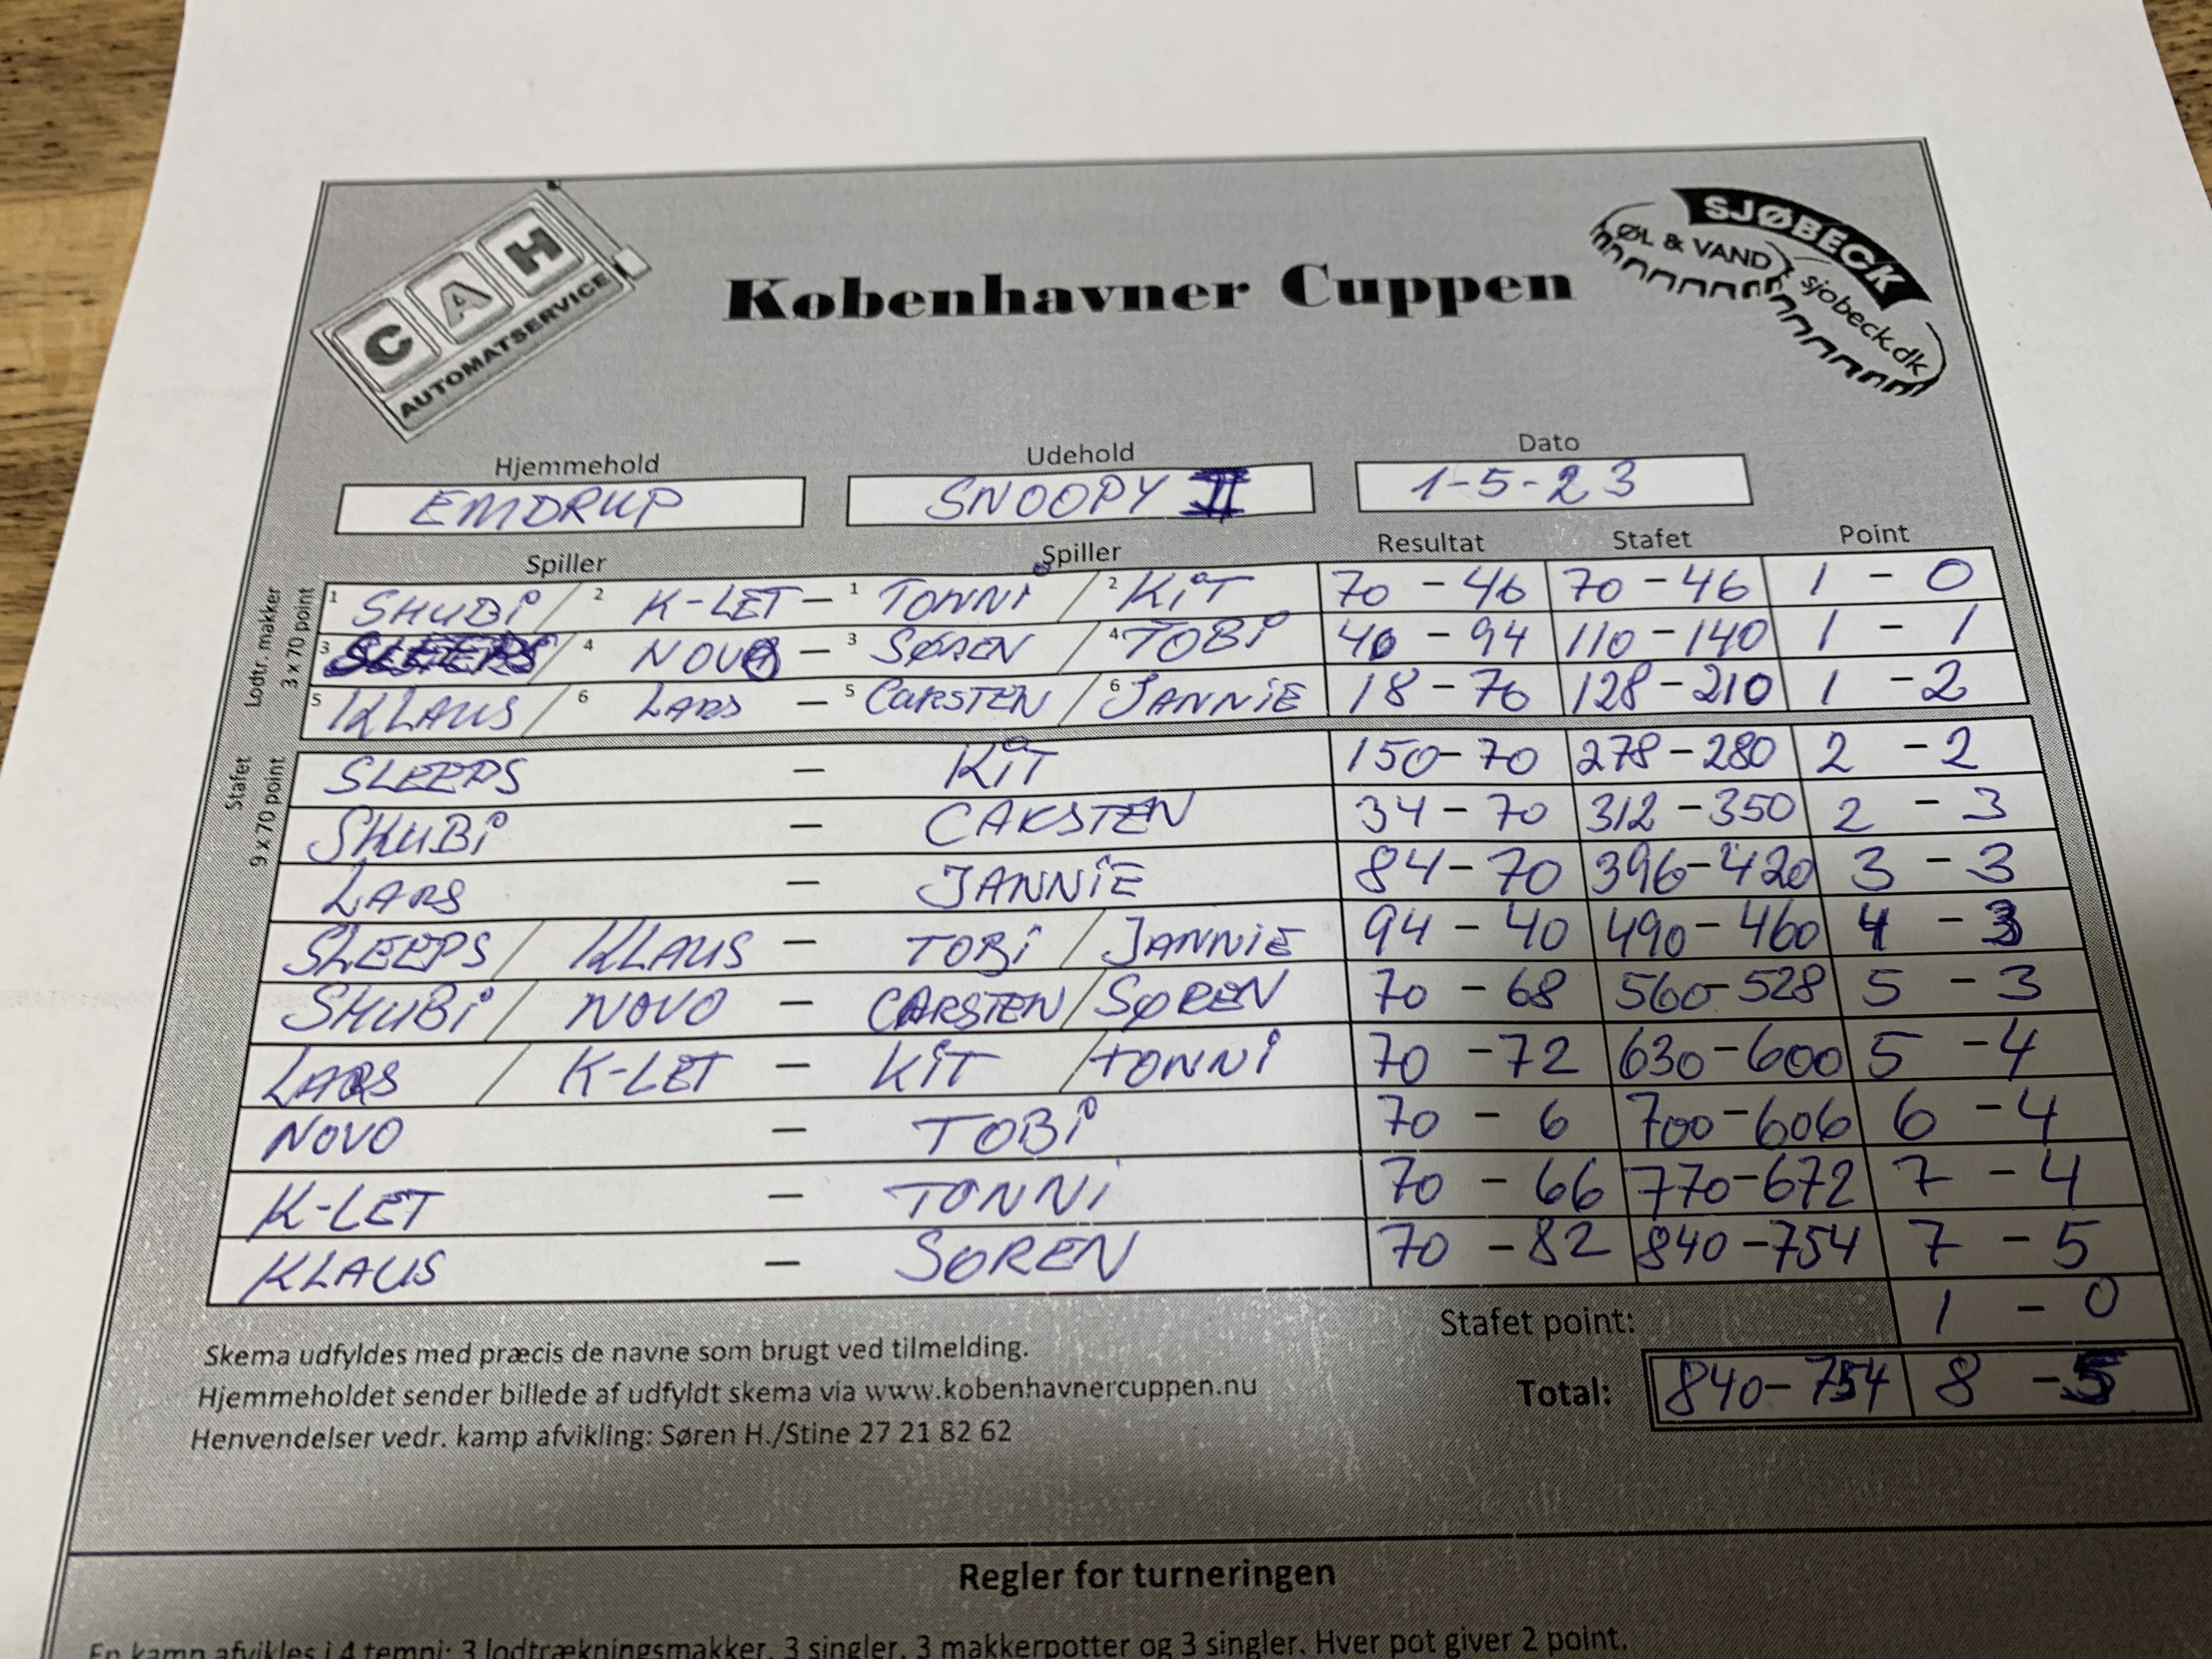 CAH
AUTOMATSERVICE
Kobenhavner Cuppen
SJØBECK
ØL & VAND
sjobeck.dk
Hjemmehold Udehold Dato
EMDRUP SNOOPY II 1-5-23
Spiller Spiller Resultat Stafet Point
Lodtr. makker
3 x 70 point
1 SKUBI / 2 K-LET - 1 TONNI / 2 KIT 70 - 46 70 - 46 1 - 0
3 SLEEPS / 4 NOVO - 3 SØREN / 4 TOBI 40 - 94 110 - 140 1 - 1
5 KLAUS / 6 LARS - 5 CARSTEN / 6 JANNIE 18 - 70 128 - 210 1 - 2
Stafet
9 x 70 point
SLEEPS - KIT 150 - 70 278 - 280 2 - 2
SKUBI - CARSTEN 34 - 70 312 - 350 2 - 3
LARS - JANNIE 84 - 70 396 - 420 3 - 3
SLEEPS / KLAUS - TOBI / JANNIE 94 - 40 490 - 460 4 - 3
SKUBI / NOVO - CARSTEN / SØREN 70 - 68 560 - 528 5 - 3
LARS / K-LET - KIT / TONNI 70 - 72 630 - 600 5 - 4
NOVO - TOBI 70 - 6 700 - 606 6 - 4
K-LET - TONNI 70 - 66 770 - 672 7 - 4
KLAUS - SØREN 70 - 82 840 - 754 7 - 5
Stafet point: 1 - 0
Total: 840 - 754 8 - 5
Skema udfyldes med præcis de navne som brugt ved tilmelding.
Hjemmeholdet sender billede af udfyldt skema via www.kobenhavnercuppen.nu
Henvendelser vedr. kamp afvikling: Søren H./Stine 27 21 82 62
Regler for turneringen
En kamp afvikles i 4 tempi: 3 lodtrækningsmakker, 3 singler, 3 makkerpotter og 3 singler. Hver pot giver 2 point.